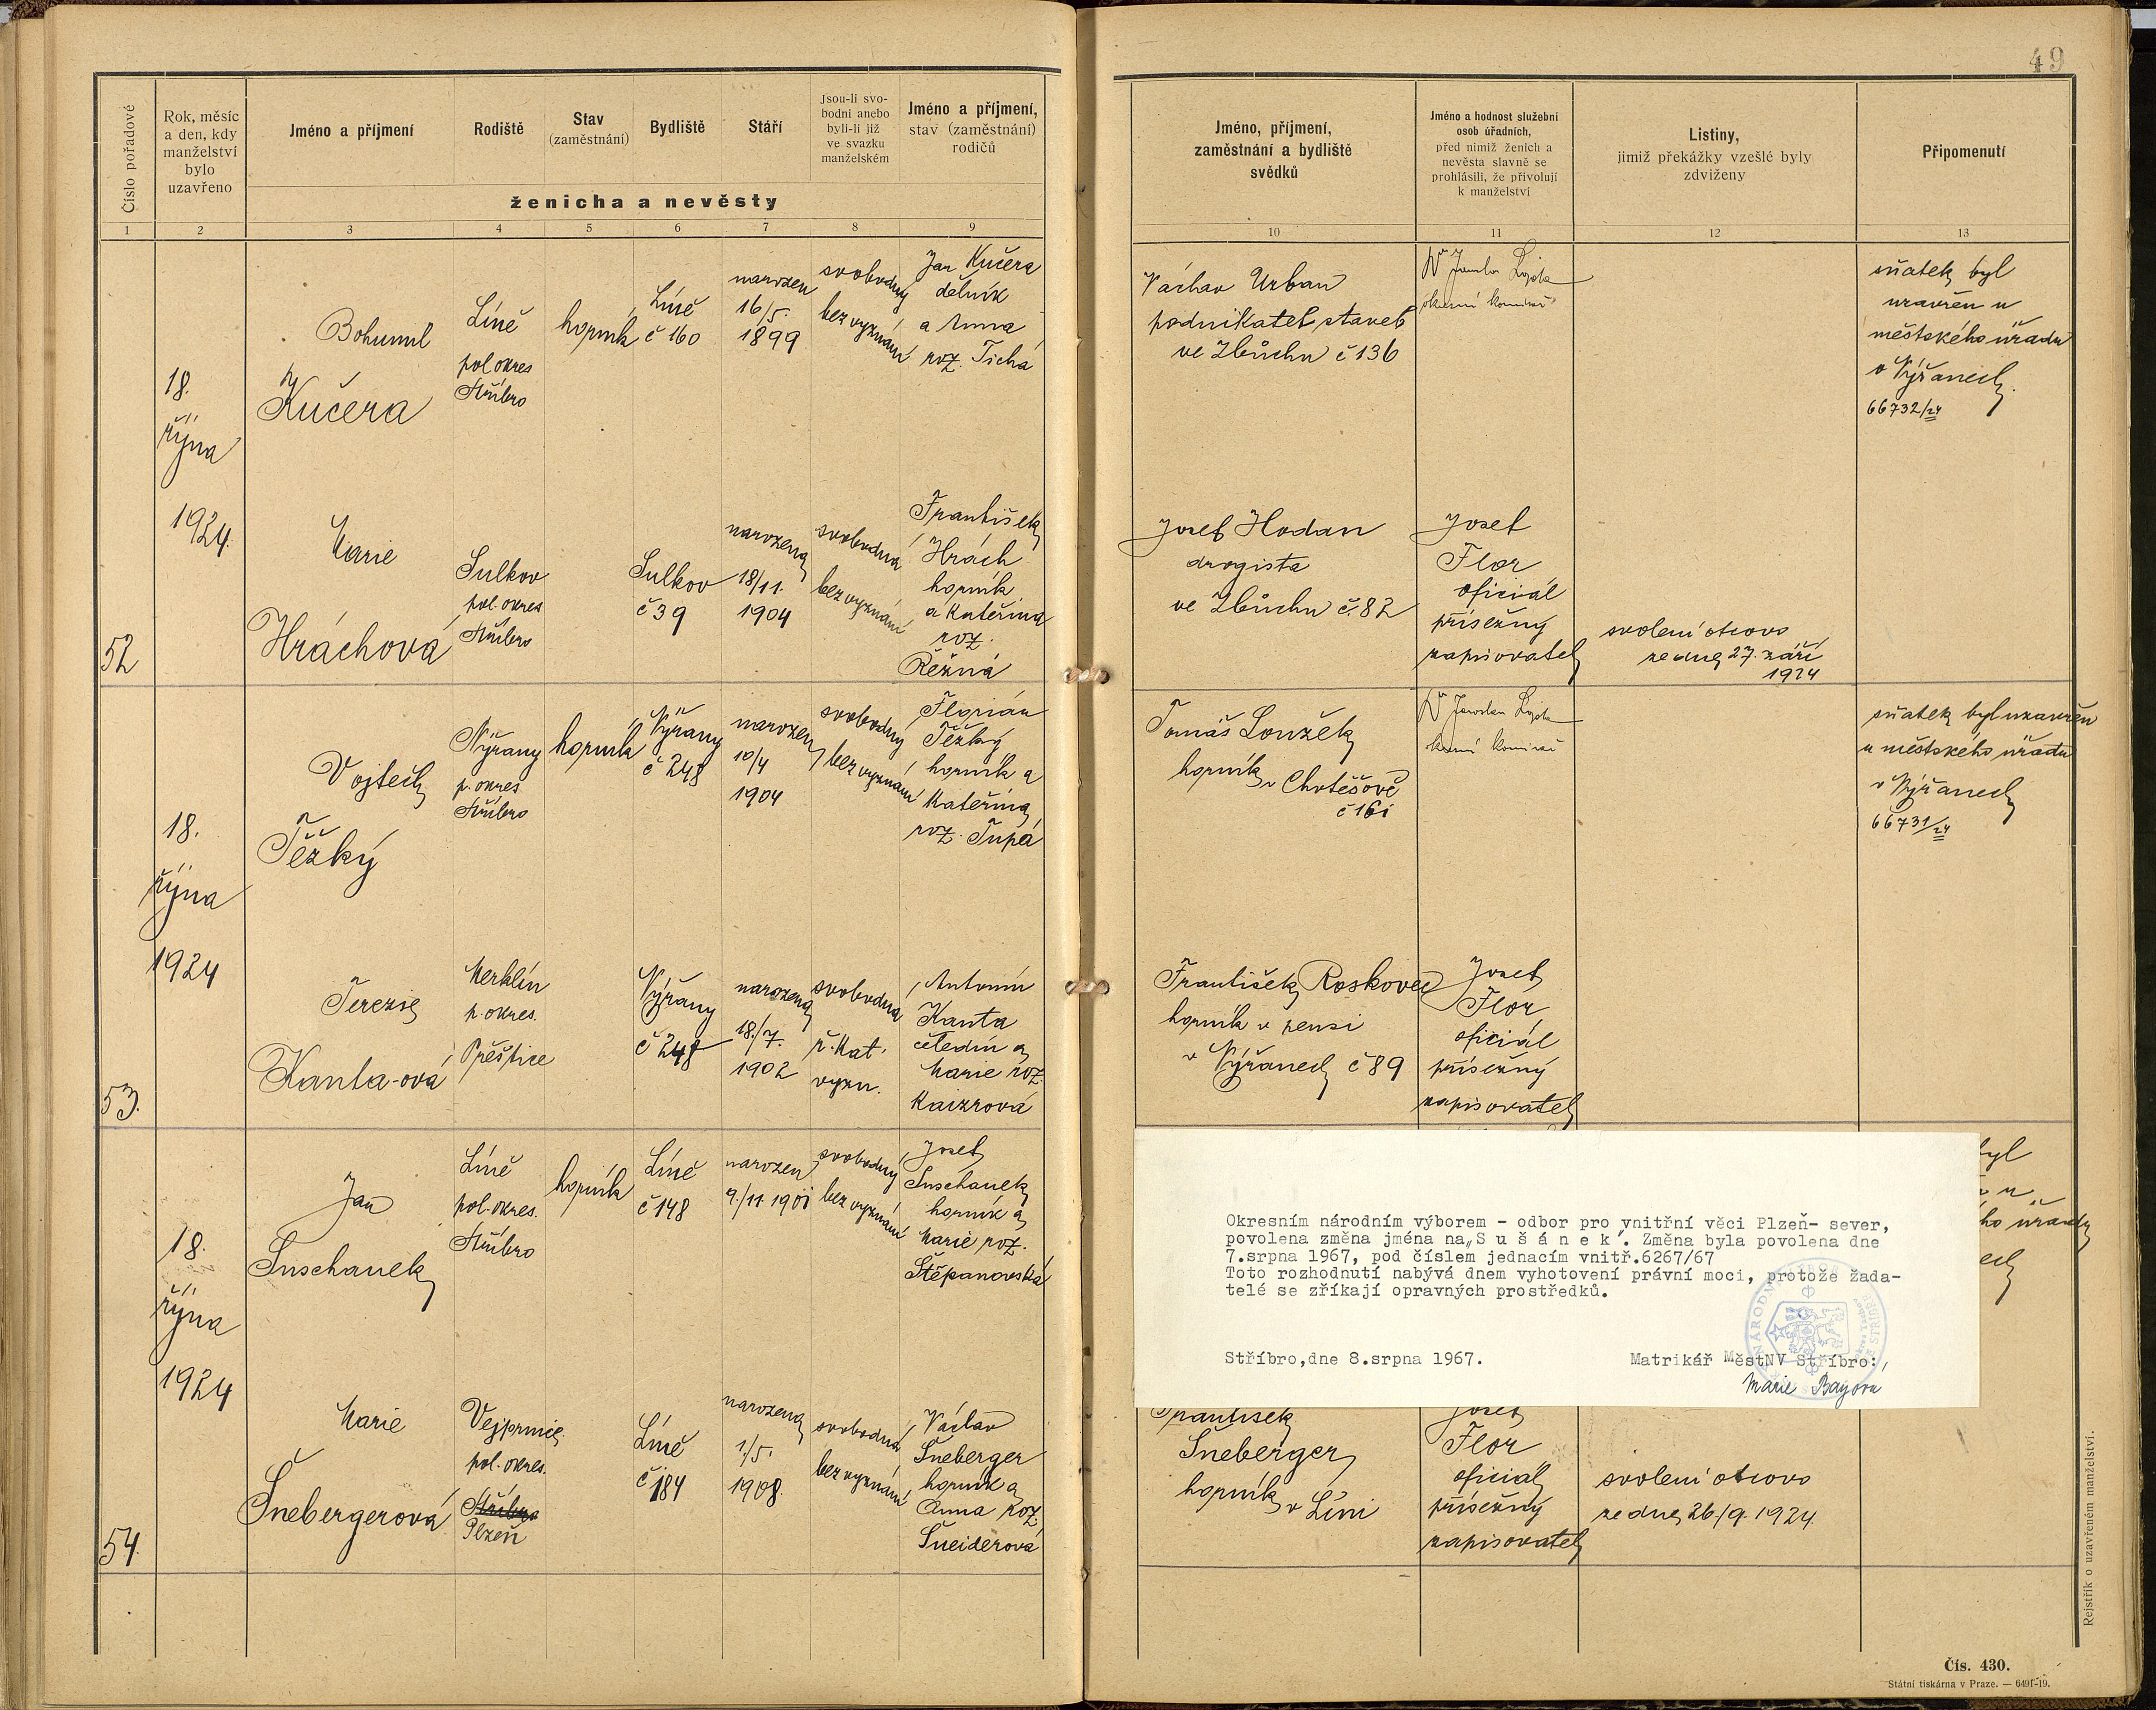 49
Číslo pořadové
Rok, měsíc
a den, kdy
manželství
bylo
uzavřeno
Jméno a příjmení
Rodiště
Stav
(zaměstnání)
Bydliště
Stáří
Jsou-li svo-
bodni anebo
byli-li již
ve svazku
manželském
Jméno a příjmení,
stav (zaměstnání)
rodičů
ženicha a nevěsty
Jméno, příjmení,
zaměstnání a bydliště
svědků
Jméno a hodnost služební
osob úřadních,
před nimiž ženich a
nevěsta slavně se
prohlásili, že přivolují
k manželství
Listiny,
jimiž překážky vzešlé byly
zdviženy
Připomenutí
1 2 3 4 5 6 7 8 9 10 11 12 13
52
18.
října
1924.
Bohumil
Kučera
Líně
pol okres
Stříbro
horník
Líně
č 160
narozen
16/5.
1899
svobodný
bez vyznání
Jan Kučera
dělník
a Anna
roz. Tichá
Václav Urban
podnikatel staveb
ve Zbůchu č 136
sňatek byl
uzavřen u
městského úřadu
v Nýřanech.
66732/24
Marie
Hráchová
Sulkov
pol. okres
Stříbro
Sulkov
č 39
narozena
18/11.
1904
svobodná
bez vyznání
František
Hrách
horník
a Kateřina
roz.
Řežná
Josef Hodan
drogista
ve Zbůchu č. 82
Josef
Flor
oficiál
přísežný
zapisovatel
svolení otcovo
ze dne 27. září
1924
53.
18.
října
1924
Vojtěch
Těžký
Nýřany
p. okres
Stříbro
horník
Nýřany
č 248
narozen
10/4
1904
svobodný
bez vyznání
Florián
Těžký
horník a
Kateřina
roz. Tupá
Tomáš Loužek
horník v Chotěšově
č 161
sňatek byl uzavřen
u městského úřadu
v Nýřanech
66731/24
Terezie
Kanta-ová
Merklín
p. okres.
Přeštice
Nýřany
č 248
narozena
18./7.
1902
svobodná
ř. kat.
vyzn.
Antonín
Kanta
čeledín a
Marie roz.
Kaizrová
František Roskovec
horník v pensi
v Nýřanech č 89
Josef
Flor
oficiál
přísežný
zapisovatel
54.
18.
října
1924
Jan
Suschanek
Líně
pol. okres.
Stříbro
horník
Líně
č 148
narozen
9./11. 1901
svobodný
bez vyznání
Josef
Suschanek
horník a
Marie roz.
Štěpanovská
Okresním národním výborem - odbor pro vnitřní věci Plzeň- sever,
povolena změna jména na „S u š á n e k". Změna byla povolena dne
7.srpna 1967, pod číslem jednacím vnitř.6267/67
Toto rozhodnutí nabývá dnem vyhotovení právní moci, protože žada-
telé se zříkají opravných prostředků.
Stříbro,dne 8.srpna 1967.
Matrikář MěstNV Stříbro:
Marie Bayova
Marie
Šnebergerová
Vejprnice
pol. okres.
Stříbro
Plzeň
Líně
č 184
narozena
1./5.
1908.
svobodná
bez vyznání
Václav
Šneberger
horník a
Anna roz.
Šneiderová
František
Šneberger
horník v Líni
Josef
Flor
oficiál
přísežný
zapisovatel
svolení otcovo
ze dne 26./9. 1924.
Rejstřík o uzavřeném manželství.
Čís. 430.
Státní tiskárna v Praze. — 6491-19.